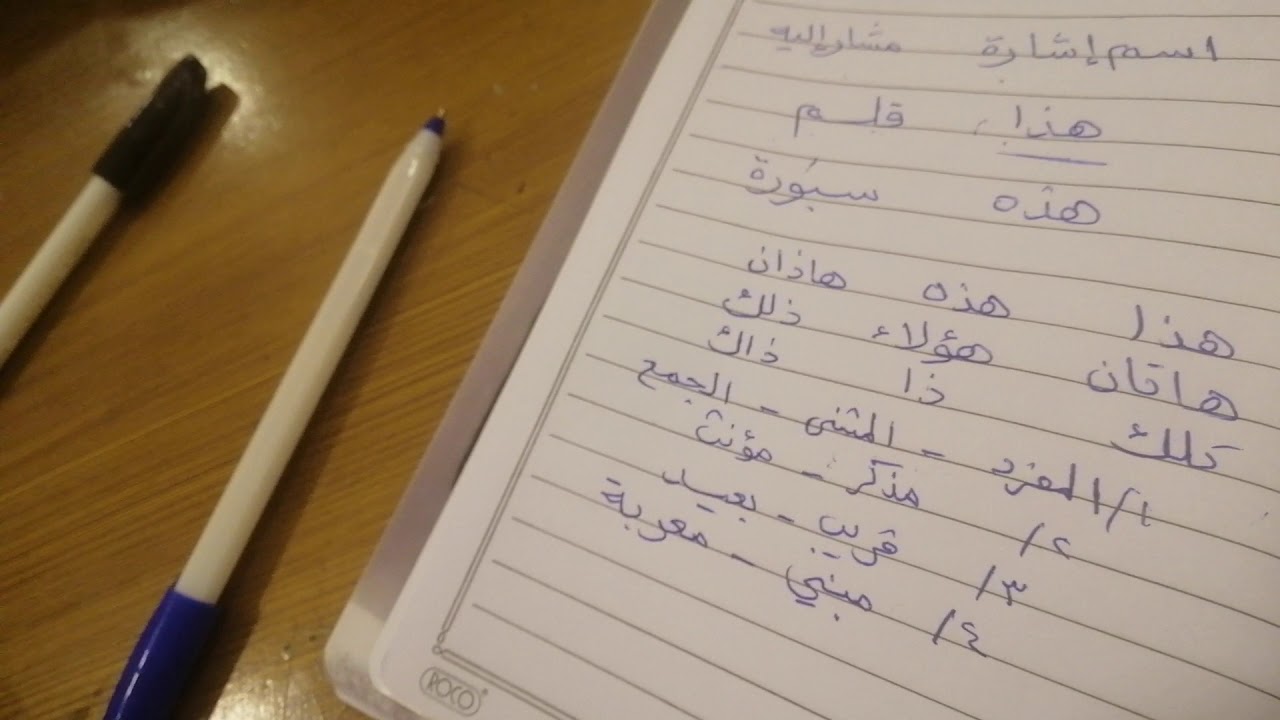 اسم إشارة مشار إليه
هذا قلم
هذه سبورة
هذا هذه هاذان
هاتان هؤلاء ذلك
تلك ذا ذاك
١/ المفرد - المثنى - الجمع
٢/ مذكر - مؤنث
٣/ قريب - بعيد
٤/ مبني - معربة
ROCO